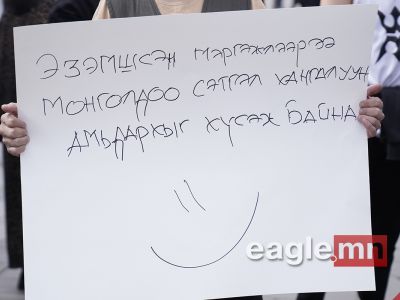 Эзэмшсэн мэргэжлээрээ
Монголдоо сэтгэл хангалуун
амьдархыг хүсэж байна
eagle.mn